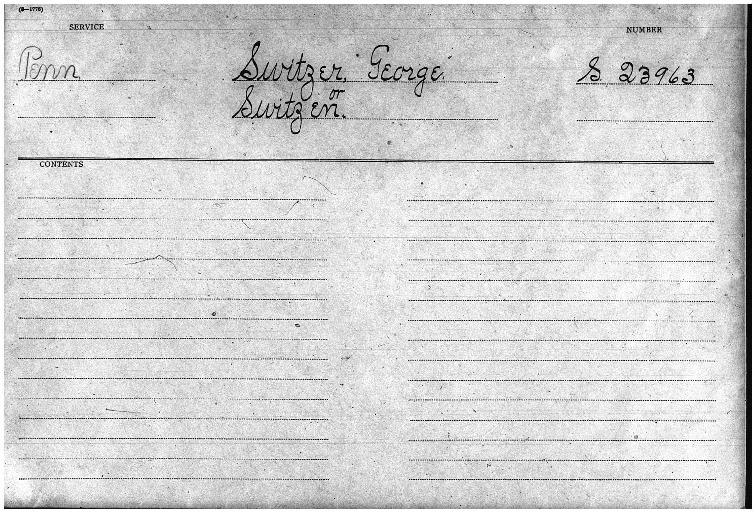 (6—1778)
SERVICE
NUMBER
Penn
Switzer, George
S 23963
or
Switzen.
CONTENTS